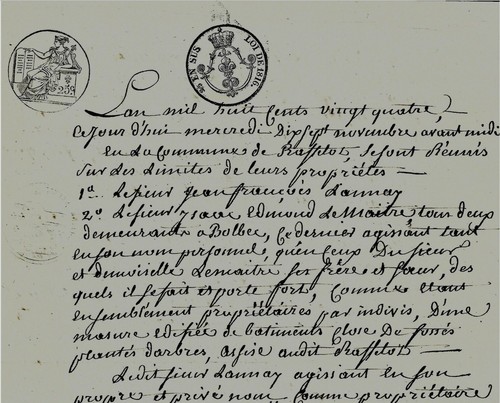 EN SUS LOI DE 1816.
L'an mil huit Cents vingt quatre,
Ce Jour d'hui mercredi Dix Sept novembre avant midi
En La Commune de Raffetot, Se sont Réunis
Sur des Limites de leurs propriétés —
1º. Le Sieur Jean françois Launay
2º. Le Sieur Isaac Edmond Le Maitre, tous deux
demeurants à Bolbec, Ce dernier agissant tant
en Son nom personnel, qu'en Ceux Du Sieur
et demoiselle Lemaitre Ses frère et Sœur, des
quels il Se fait et porte fort, Comme Etant
ensemblement propriétaires par indivis, D'une
masure édifiée de batiments Close De fossés
plantés d'arbres, assise audit Raffetot —
Ledit Sieur Launay agissant en Son
propre et privé nom Comme propriétaire